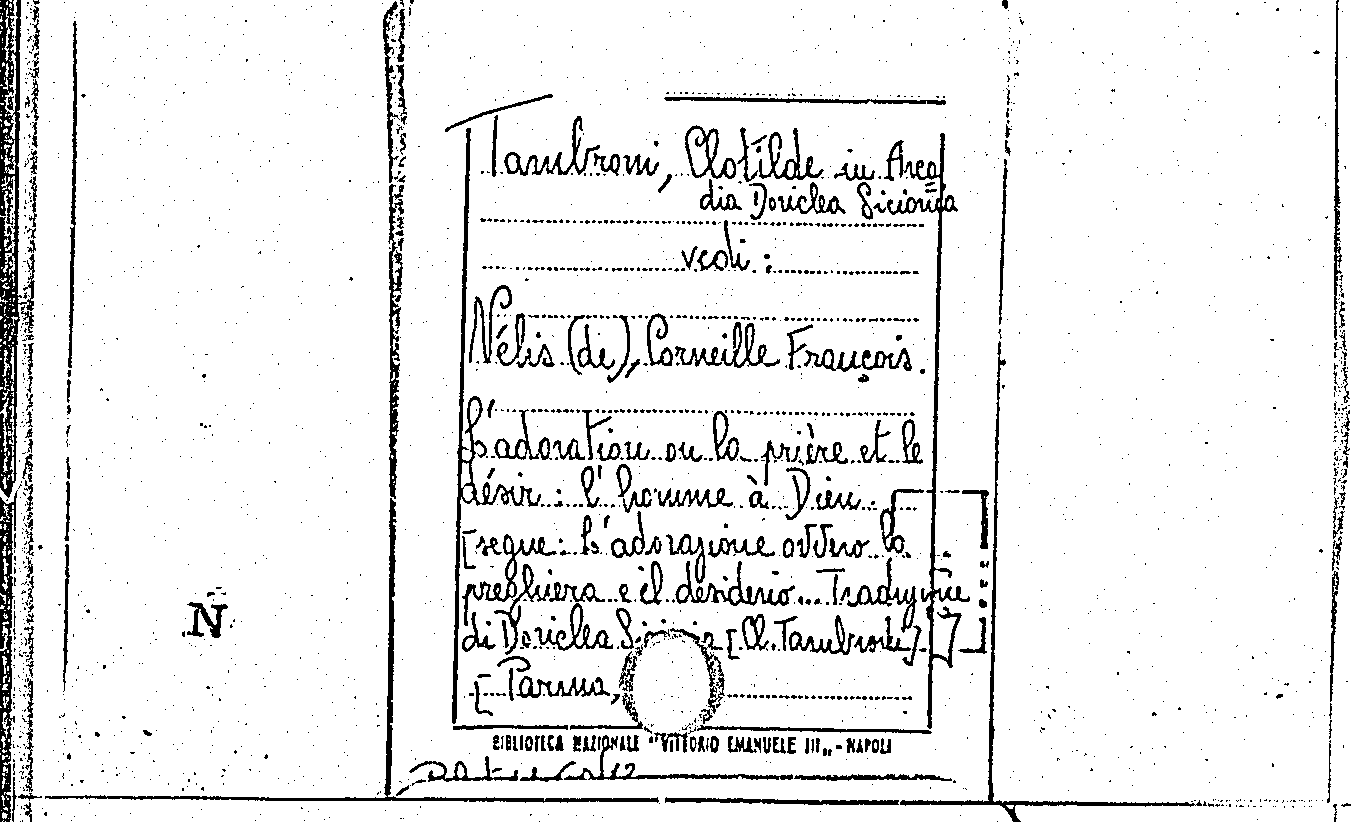 Tambroni, Clotilde in Arca
dia Doriclea Sicionia
vedi :
Nélis (de), Corneille François.
L'adoration ou la prière et le
désir : l'homme à Dieu.
[segue: L'adorazione ovvero la
preghiera e il desiderio... Traduzione
di Doriclea [Cl. Tambroni]]
[Parma,
N
BIBLIOTECA NAZIONALE "VITTORIO EMANUELE III„ - NAPOLI